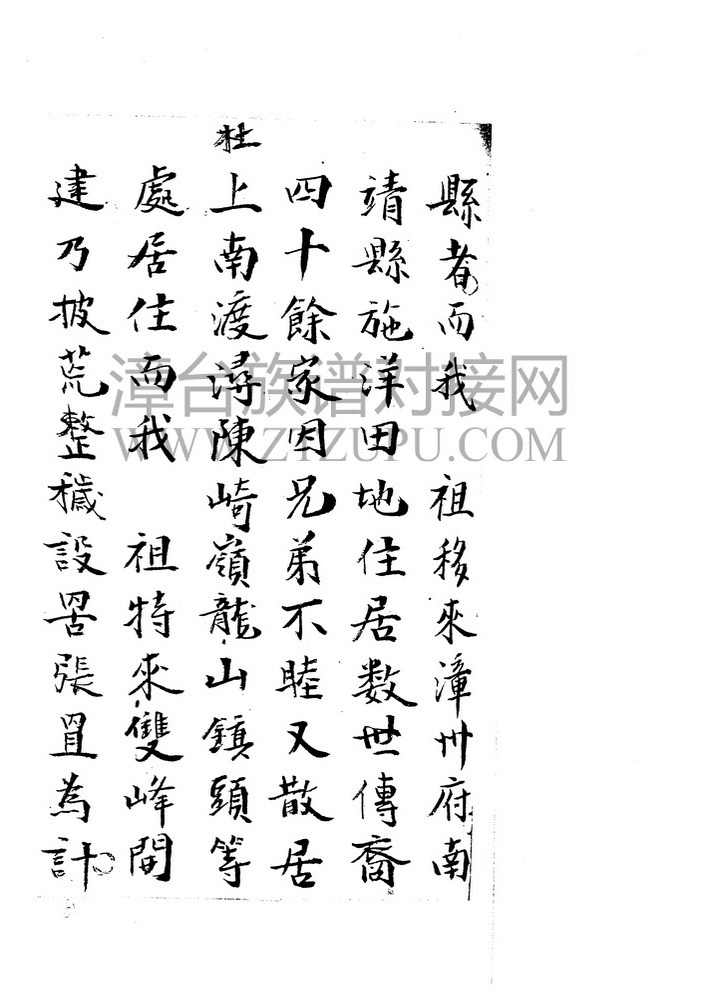 縣者而我 祖移來漳州府南
靖縣施洋田地住居数世傳裔
四十餘家因兄弟不睦又散居
杜
上南渡潯陳崎嶺龍山鎮頭等
處居住而我 祖特來雙峰開
建乃披荒整穢設罟張罝為計
漳台族谱对接网
WWW.ZTZUPU.COM